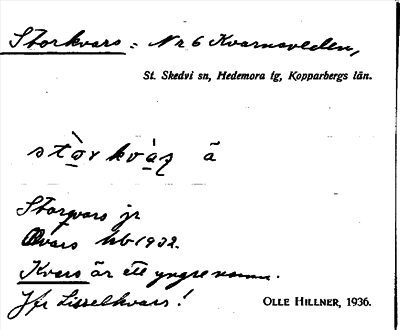 Storkvars: Nr 6 Kvarnsveden,
St. Skedvi sn, Hedemora tg, Kopparbergs län.
å
Storqvars jr
Qvars hb 1932.
Kvars är ett yngre namn.
Jfr Lisselkvars!
OLLE HILLNER, 1936.